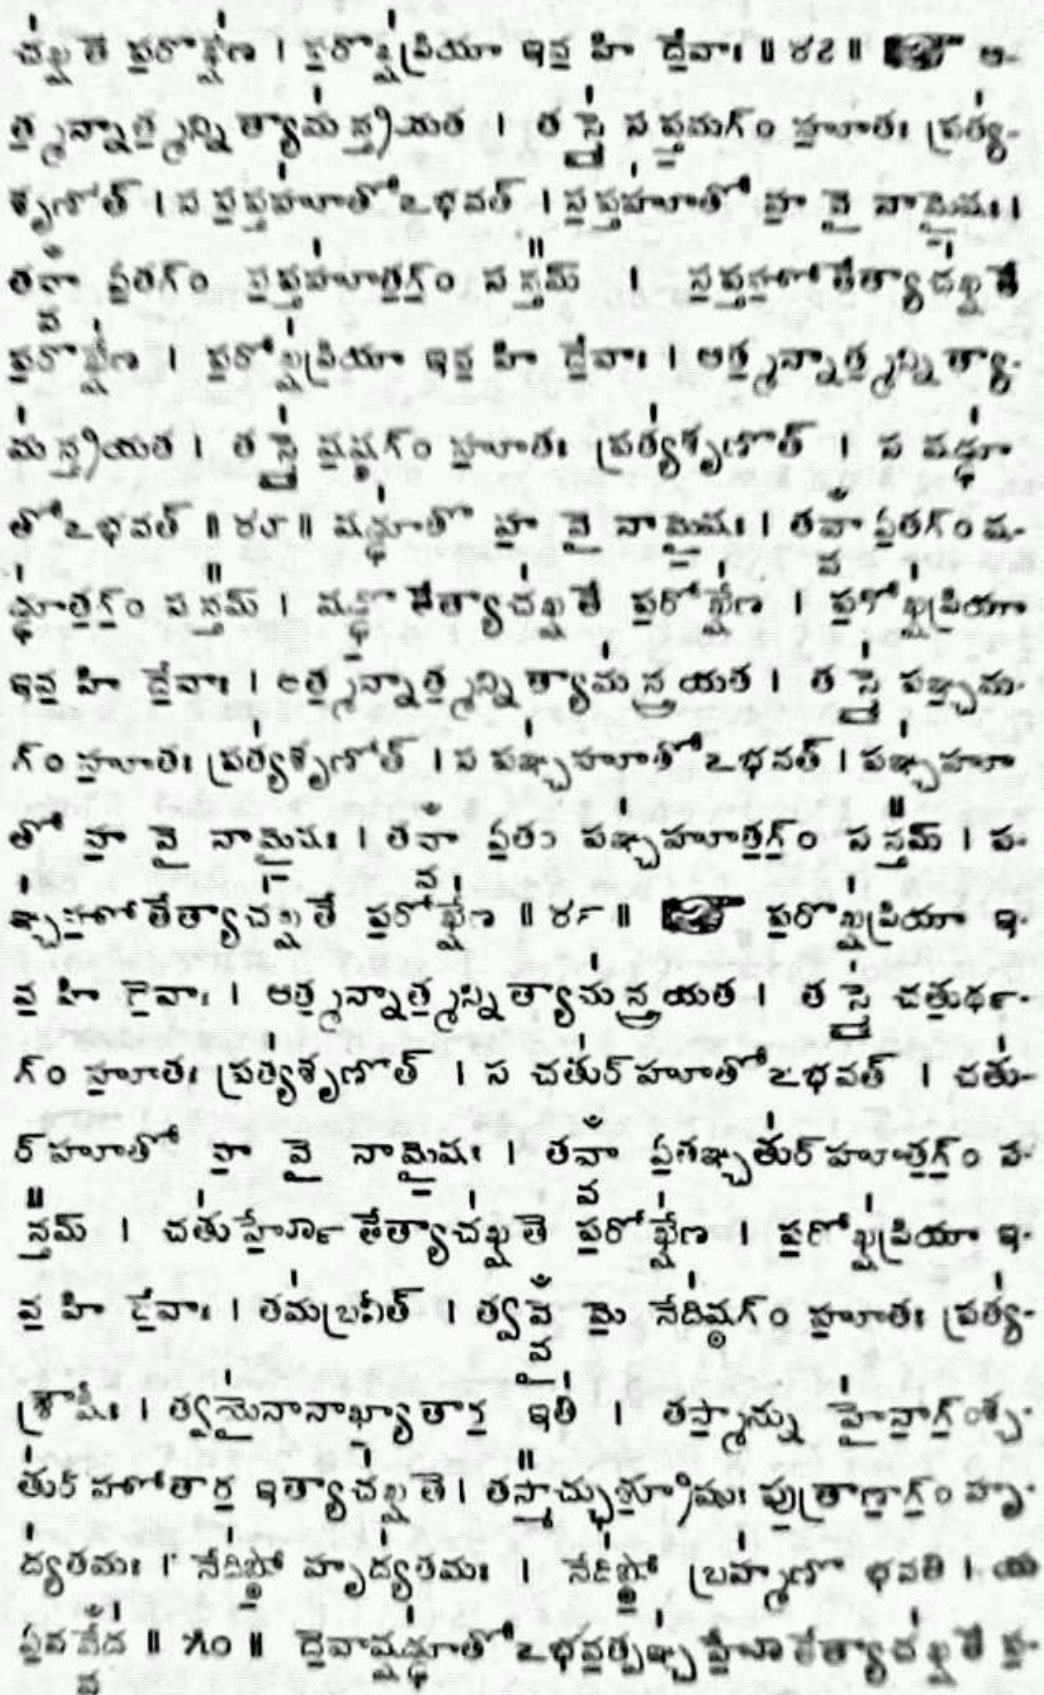 చ॑ఖ్ష తే ప॒రోఖ్షే॑ణ । ప॒రోఖ్ష॑ప్రియా ఇవ॒ హి దే॒వాః ॥ ౪౭ ॥ ఆ-
త్మ॒న్నాత్మ॒న్ని త్యామ॑ న్త్రియత । త స్మై॑ సప్త॒మగ్ం హూ॒తః ప్రత్య॑-
శృణోత్ । స స॒ప్తహూ॑తోఽభవత్ । స॒ప్తహూ॑తో హ॒ వై నామై॒షః ।
తవాఁ ఏ॒తగ్ం స॒ప్తహూ॑త॒గ్ం॒ సన్త᳚మ్ । స॒ప్తహో॒తేత్యాచ॑ఖ్షతే
ప॒రోఖ్షే॑ణ । ప॒రోఖ్ష॑ప్రియా ఇవ॒ హి దే॒వాః । ఆత్మ॒న్నాత్మ॒న్ని త్యా-
మ॑ న్త్రియత । త స్మై॑ ష॒ష్ఠగ్ం హూ॒తః ప్రత్య॑శృణోత్ । స షడ్ఢూ॑
తోఽభవత్ ॥ ౪౮ ॥ షడ్ఢూ॑తో హ॒ వై నామై॒షః । తవాఁ ఏ॒తగ్ం ష-
డ్ఢూ॑త॒గ్ం॒ సన్త᳚మ్ । షడ్ఢో॒ తేత్యాచ॑ఖ్ష తే ప॒రోఖ్షే॑ణ । ప॒రోఖ్ష॑ప్రియా
ఇవ॒ హి దే॒వాః । ఆత్మ॒న్నాత్మ॒న్ని త్యామ॑ న్త్రయత । త స్మై॑ పఞ్చ॒మ-
గ్ం హూ॒తః ప్రత్య॑శృణోత్ । స పఞ్చ॑హూతోఽభవత్ । పఞ్చ॑హూ
తో హ॒ వై నామై॒షః । తవాఁ ఏ॒తం పఞ్చ॑హూత॒గ్ం॒ సన్త᳚మ్ । ప-
ఞ్చ॑హో॒తేత్యాచ॑ఖ్ష తే ప॒రోఖ్షే॑ణ ॥ ౪౯ ॥ ప॒రోఖ్ష॑ప్రియా ఇ-
వ॒ హి దే॒వాః । ఆత్మ॒న్నాత్మ॒న్ని త్యామ॑ న్త్రయత । త స్మై॑ చతు॒ర్థ-
గ్ం హూ॒తః ప్రత్య॑శృణోత్ । స చతు॑ర్ హూతోఽభవత్ । చతు॑-
ర్ హూతో హ॒ వై నామై॒షః । తవాఁ ఏ॒తఞ్చతు॑ర్ హూత॒గ్ం॒ స-
న్త᳚మ్ । చతు॑ర్హో॒ తేత్యాచ॑ఖ్ష తే ప॒రోఖ్షే॑ణ । ప॒రోఖ్ష॑ప్రియా ఇ-
వ॒ హి దే॒వాః । తమ॑బ్రవీత్ । త్వవైఁ మే॒ నేది॑ష్ఠగ్ం హూ॒తః ప్రత్య॑-
శ్రౌషీః । త్వయై॑నానాఖ్యా॒తార॒ ఇతి॑ । తస్మా॒న్ను హై॑నా॒గ్ం॒శ్చ-
తు॑ర్ హోతార॒ ఇత్యాచ॑ఖ్ష తే । తస్మా᳚చ్ఛుశ్రూ॒షుః పు॒త్రాణా॒గ్ం హృ-
ద్య॑తమః । నేది॑ష్ఠో॒ హృద్య॑తమః । నేది॑ష్ఠో॒ బ్రహ్మ॑ణో భవతి । య
ఏ॒వవేఁద॑ ॥ ౫౦ ॥ దే॒వాష్షడ్ఢూ॑తోఽభవ॒త్పఞ్చ॑హో॒తేత్యాచ॑ఖ్ష తే ప॒